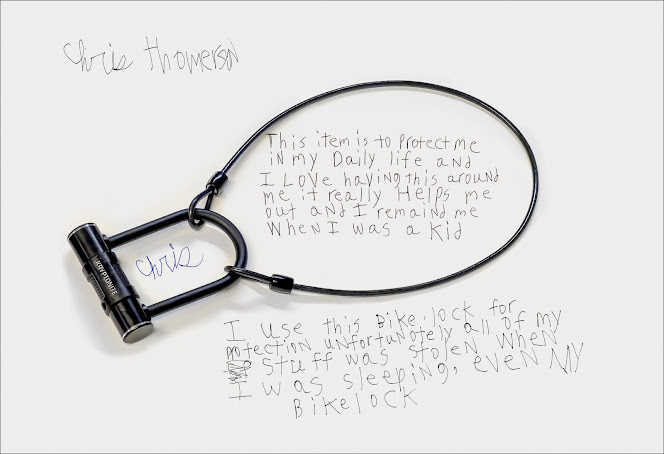 Chris Thomerson
This item is to Protect me
in my Daily life and
I Love having this around
me it really Helps me
out and I remaind me
When I was a Kid
KRYPTONITE
Chris
I use this Bike lock for
protection unfortunately all of my
stuff was stolen when
I was sleeping, even MY
Bikelock